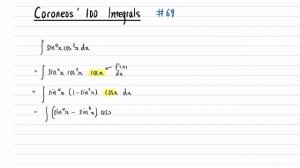 Coroneos' 100 Integrals #69
∫ sin⁴x cos³x dx
= ∫ sin⁴x cos²x cosx dx
f'(x)
= ∫ sin⁴x (1 - sin²x) cosx dx
= ∫ (sin⁴x - sin⁶x) cos